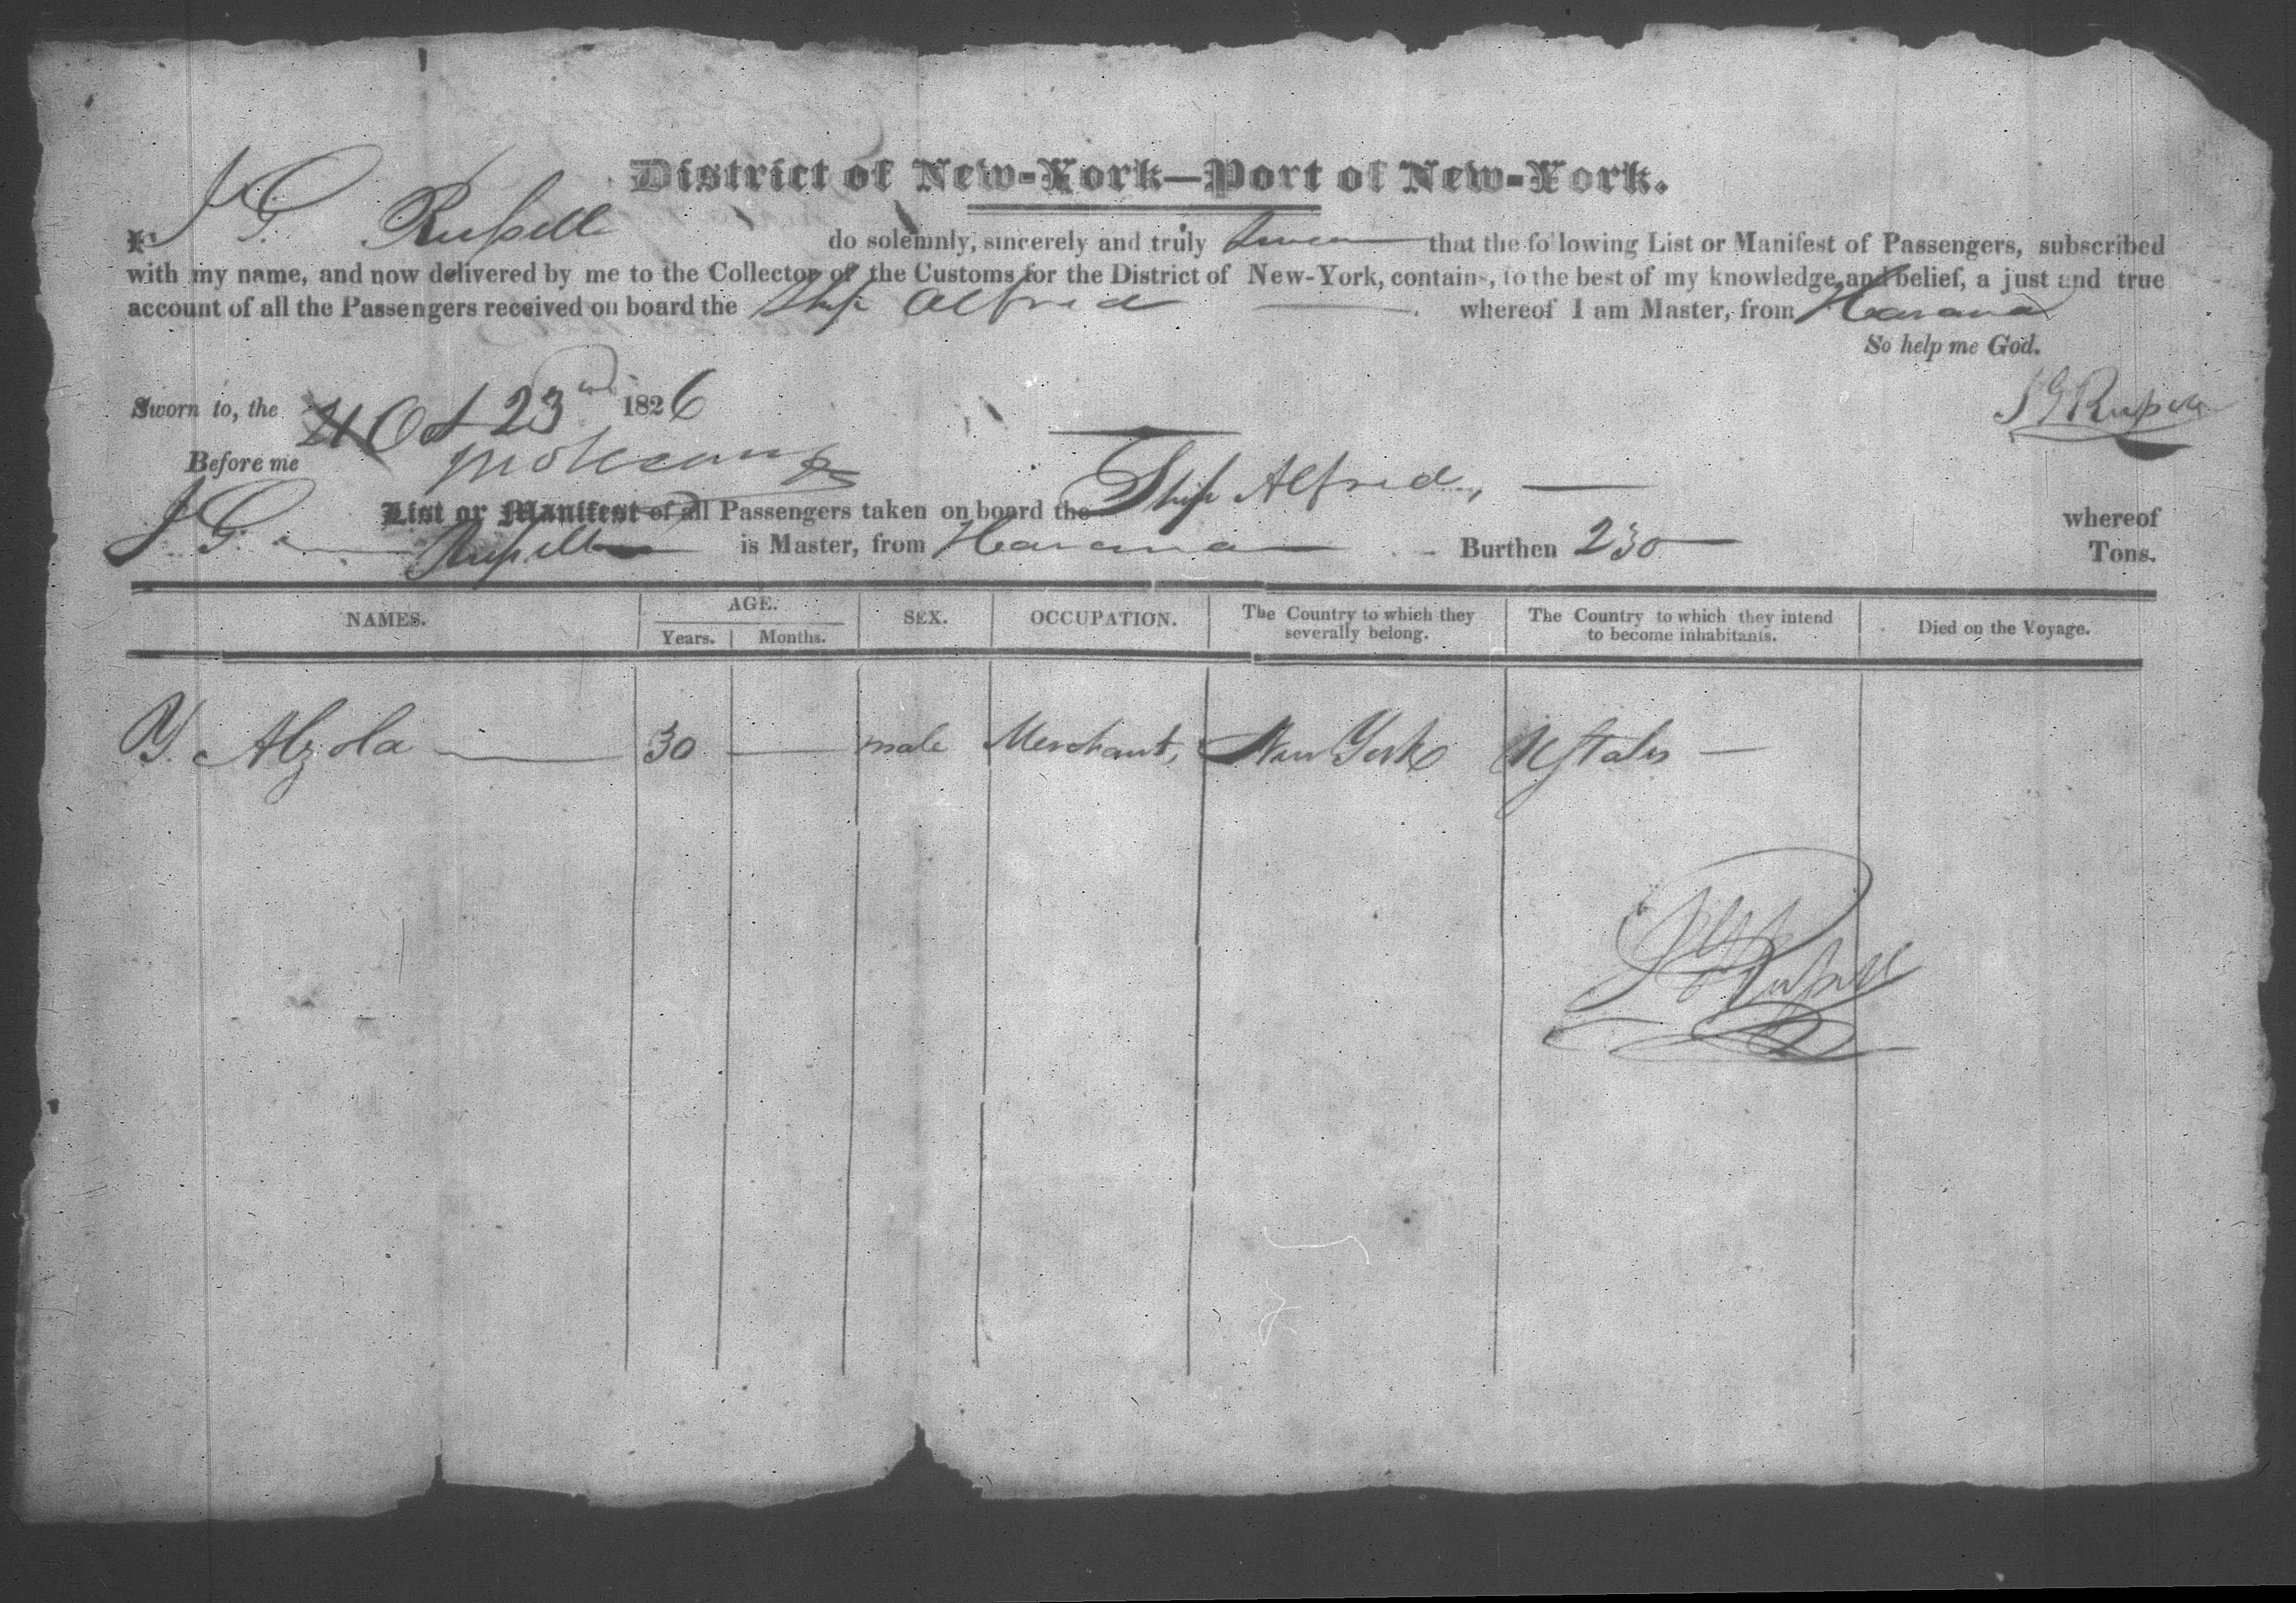 District of New-York—Port of New-York.
I, J G Russell do solemnly, sincerely and truly swear that the following List or Manifest of Passengers, subscribed
with my name, and now delivered by me to the Collector of the Customs for the District of New-York, contains, to the best of my knowledge and belief, a just and true
account of all the Passengers received on board the Ship Alfred whereof I am Master, from Havana
So help me God.
Sworn to, the Oct 23 1826
J G Russell
Before me
List or Manifest of all Passengers taken on board the Ship Alfred, whereof
J. G. Russell is Master, from Havana Burthen 230 Tons.
NAMES. AGE. SEX. OCCUPATION. The Country to which they severally belong. The Country to which they intend to become inhabitants. Died on the Voyage.
Years. Months.
Y. Alzola 30 — male Merchant, New York UStates —
J G Russell